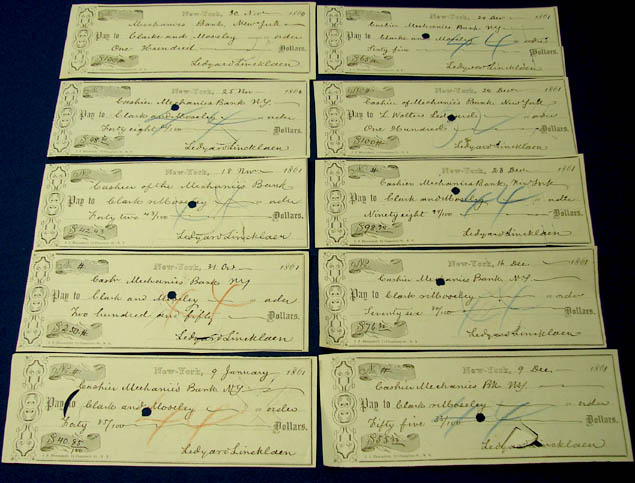 New-York, 30 Nov 186
Mechanics Bank, New York
Pay to Clark and Moseley or order
One Hundred Dollars.
$100
Ledyard Lincklaen
New-York, 25 Nov 186
Cashier Mechanics Bank N.Y.
Pay to Clark and Moseley or order
Forty eight /100 Dollars.
$48
Ledyard Lincklaen
New-York, 18 Nov 1861
Cashier of the Mechanics Bank
Pay to Clark & Moseley or order
Forty two 43/100 Dollars.
$42.43
Ledyard Lincklaen
New-York, 31 Oct 1861
Cash Mechanics Bank NY
Pay to Clark and Moseley or order
Two hundred and fifty Dollars.
$250
Ledyard Lincklaen
New-York, 9 January 1861
Cashier Mechanics Bank N.Y.
Pay to Clark and Moseley or order
Forty 85/100 Dollars.
$40.85/100
Ledyard Lincklaen
New-York, 1861
Cashier Mechanics Bank NY
Pay to Clark & Moseley or order
Sixty five Dollars.
$65
Ledyard Lincklaen
New-York, Dec 1861
Cashier of Mechanics Bank, New York
Pay to L. Wolters Ledyard or order
One Hundred Dollars.
$100
Ledyard Lincklaen
New-York, 23 Dec 1861
Cashier Mechanics Bank New York
Pay to Clark and Moseley or order
Ninety eight /100 Dollars.
$98
Ledyard Lincklaen
New-York, 16 Dec 1861
Cashier Mechanics Bank N.Y.
Pay to Clark & Moseley or order
Seventy six /100 Dollars.
$76
Ledyard Lincklaen
New-York, 9 Dec 1861
Cashier Mechanics Bk NY
Pay to Clark & Moseley or order
Fifty five /100 Dollars.
$55
Ledyard Lincklaen